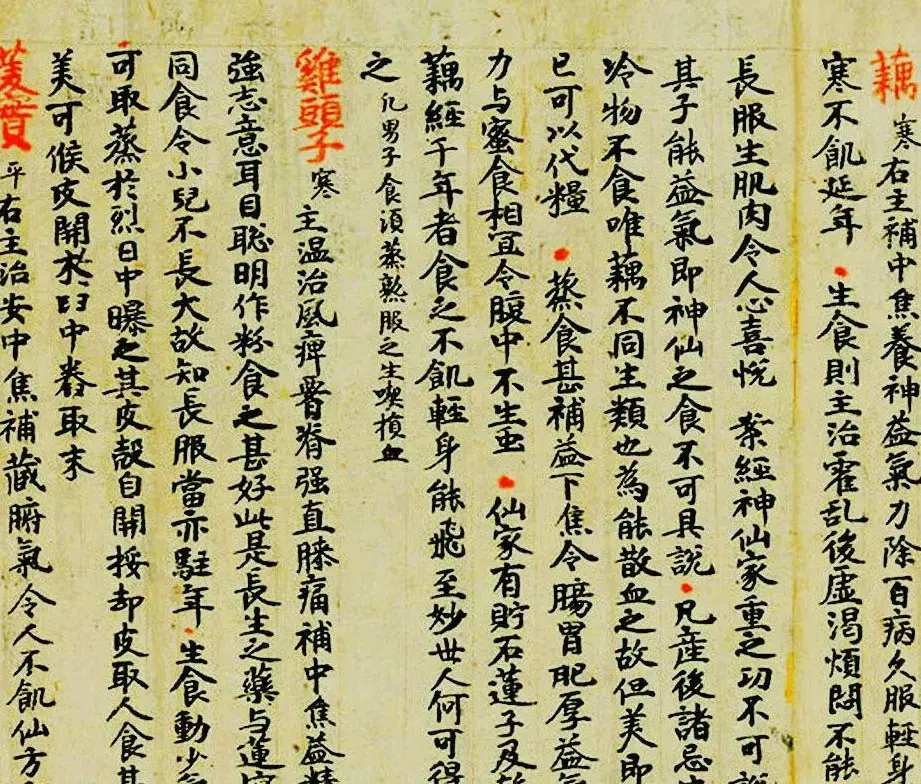 藕寒右主補中焦養神益氣力除百病久服輕身
寒不飢延年 生食則主治霍乱後虛渴煩悶不能
長服生肌肉令人心喜悅 案經神仙家重之功不可說
其子能益氣即神仙之食不可具說 凡產後諸忌生
冷物不食唯藕不同生類也為能散血之故但美即
已可以代糧 蒸食甚補益下焦令腸胃肥厚益氣
力与蜜食相冝令腹中不生虫 仙家有貯石蓮子及乾
藕經千年者食之不飢輕身能飛至妙世人何可得
之凡男子食須蒸熟服之生喫損血
雞頭子寒主温治風痺署脊强直膝痛補中焦益精
強志意耳目聡明作粉食之甚好此是長生之藥与蓮實
同食令小兒不長大故知長服當亦駐年 生食動少氣
可取蒸於烈日中曝之其皮殼自開挼却皮取人食甚
美可候皮開於臼中舂取末
菱實平右主治安中焦補藏腑氣令人不飢仙方